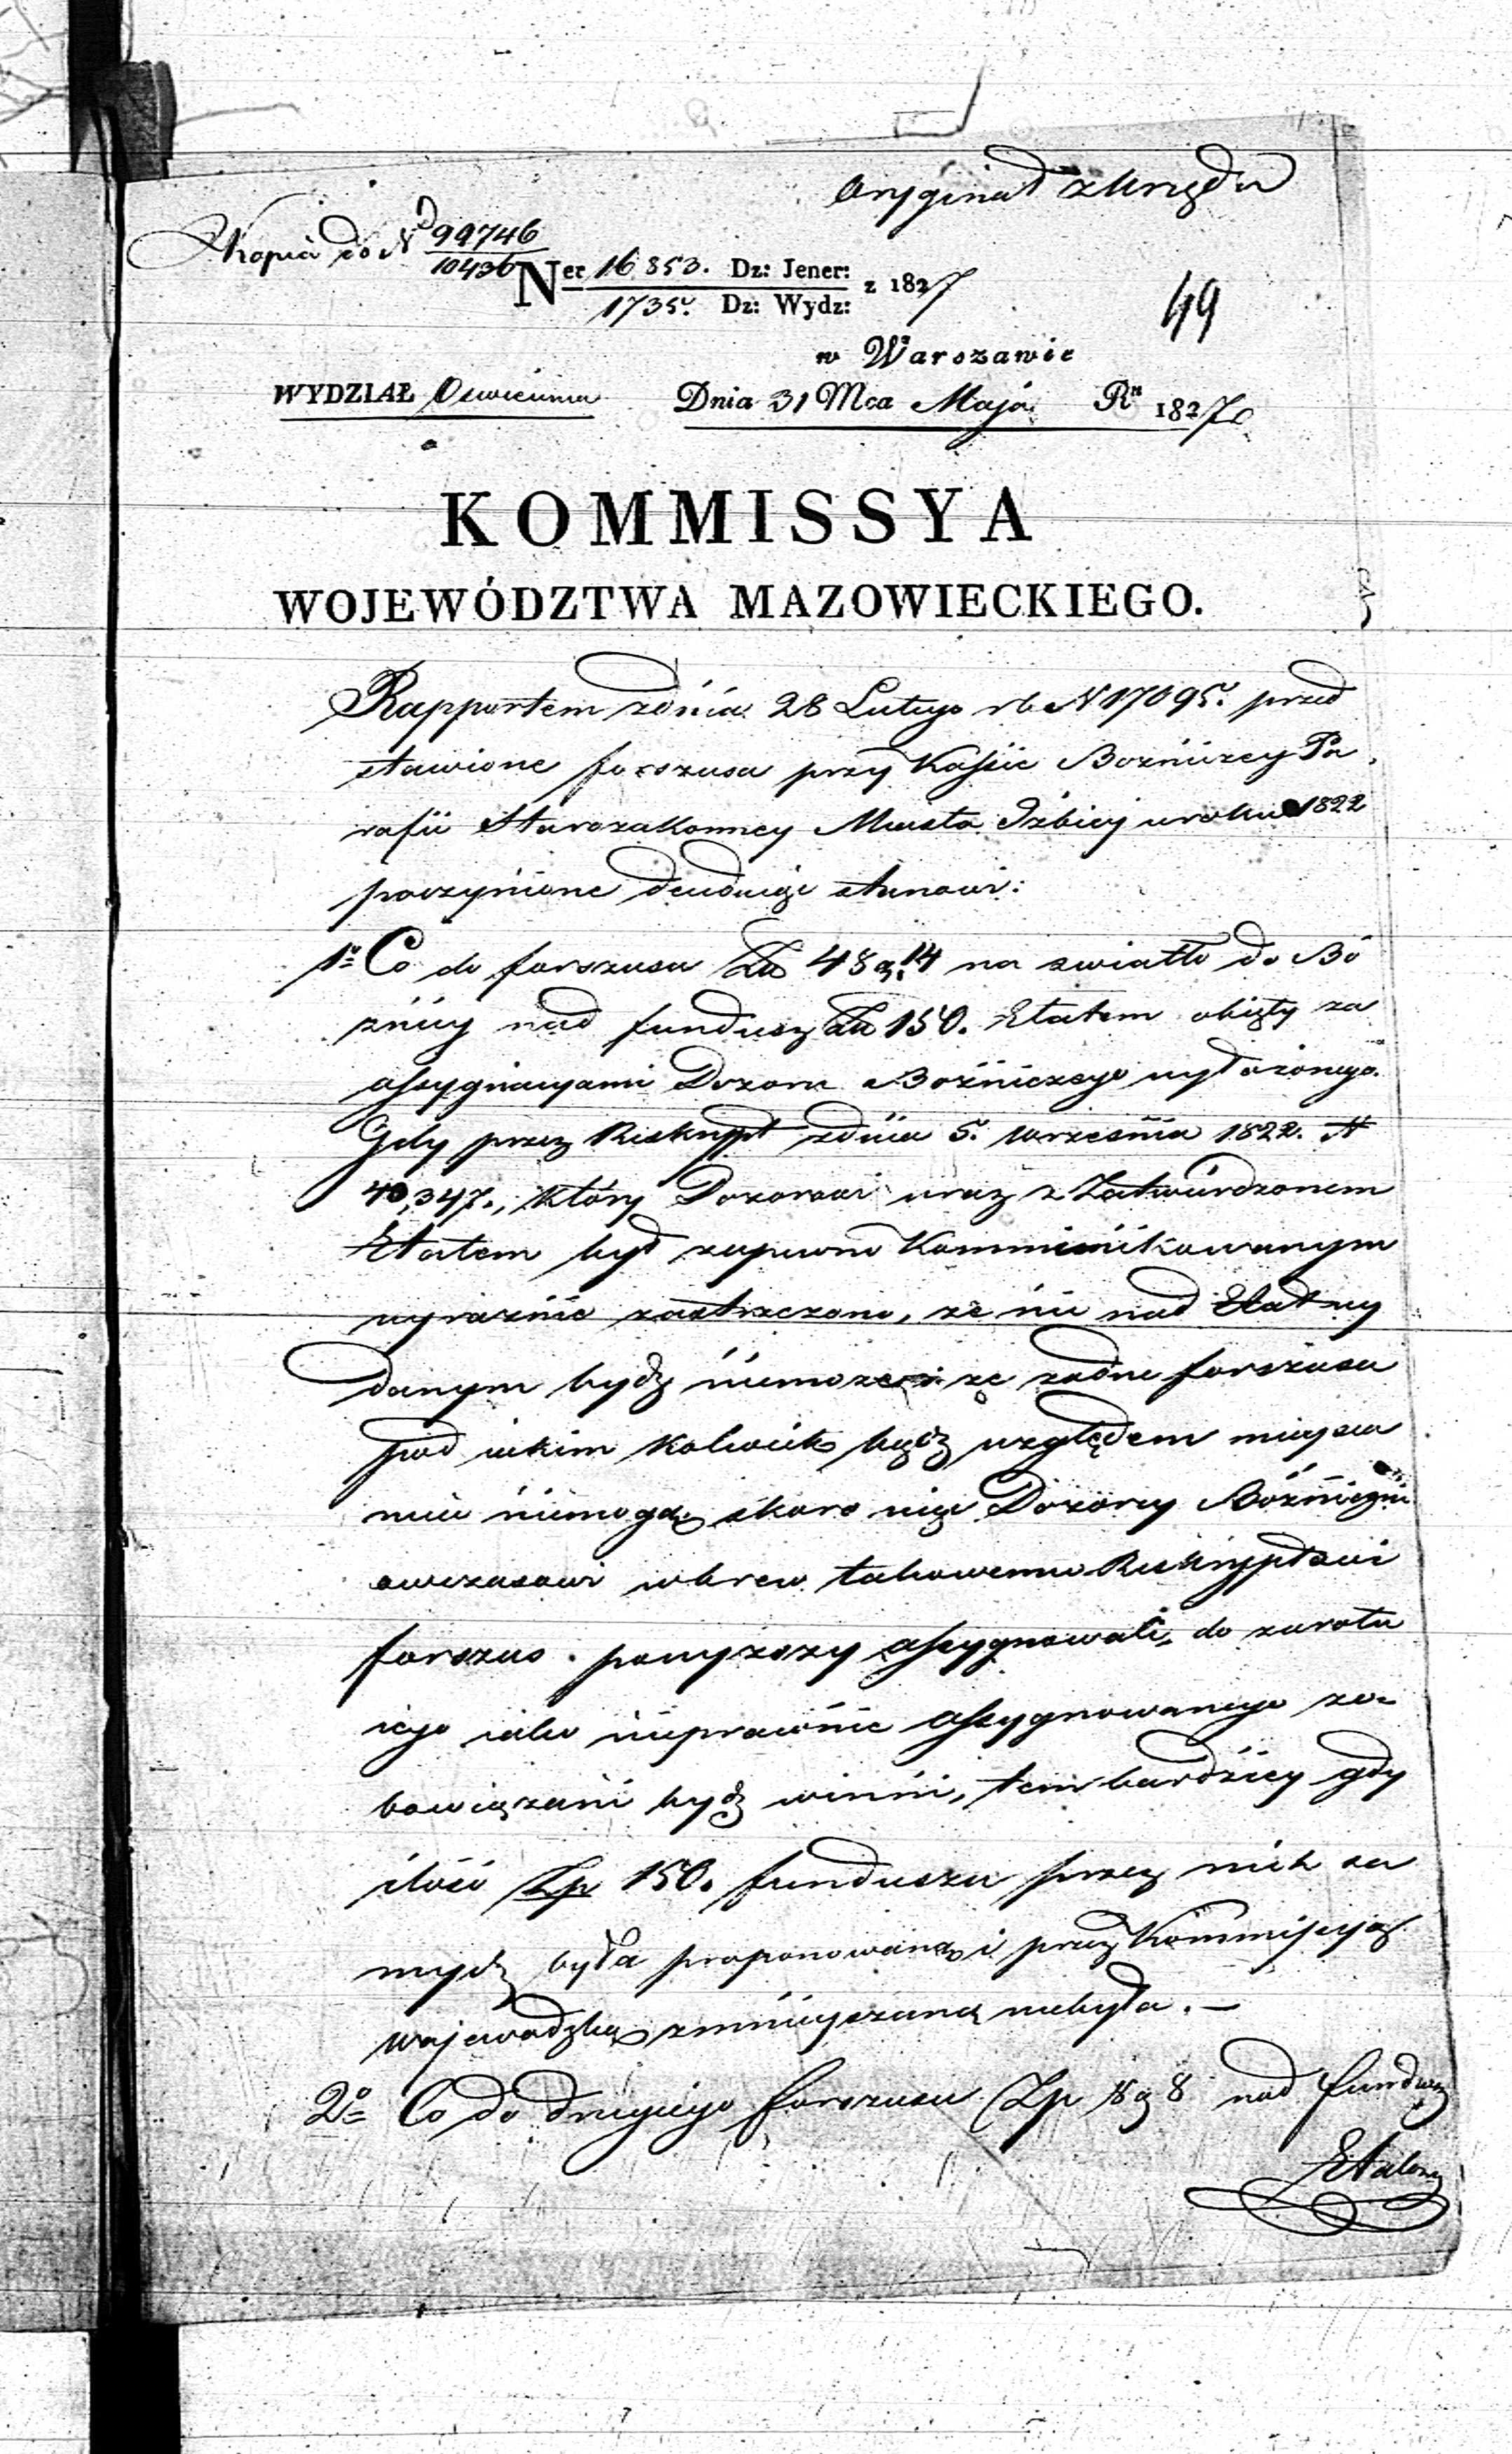 Oryginał z Urzędu
Kopia do N 99746
10436
Ner 16853. Dz: Jener: z 1827
1735. Dz: Wydz:
49
w Warszawie
WYDZIAŁ Oswiecenia Dnia 31 Mca Maja Rn 1827
KOMMISSYA
WOJEWÓDZTWA MAZOWIECKIEGO.
Rapportem zdnia 28 Lutego rb N 17095. przed
stawione forszusa przy Kassie Boznicznej Pa
rafii Starozakonney Miasta Izbicy w roku 1822
poczynione decyduje stanowi:
1o Co do forszusu Zł 48 g. 14 na swiatło do Bó
żnicy nad fundusz Zł 150. Etatem obięty za
assygnacyami Dozoru Bóżniczego wyłożonego.
Gdy przez Reskrypt zdnia 5. Września 1822. N
40,347., który Dozorowi wraz z Zatwierdzonem
Etatem był zapewne Kommunikowanym
wyraźnie zastrzeżono, że nic nad Etat wy
danym bydź niemoże i że żadne forszusa
pod iakim kolwiek bądź względem mieysca
mieć niemogą, skoro więc Dozorcy Bóżniczni
owczasowi wbrew takowemu Reskryptowi
forszus powyższy assygnowali, do zwrotu
iego iako nieprawnie assygnowanego zo-
bowiązani bydź winni, tembardziey gdy
ilość Zp 150. funduszu przez nich sa
mych była proponowaną i przez Kommissyą
Wojewodzką zmnieyszaną niebyła. —
2o Co do drugiego forszusu Zp 18 g 8 nad fundusz
Etatowy